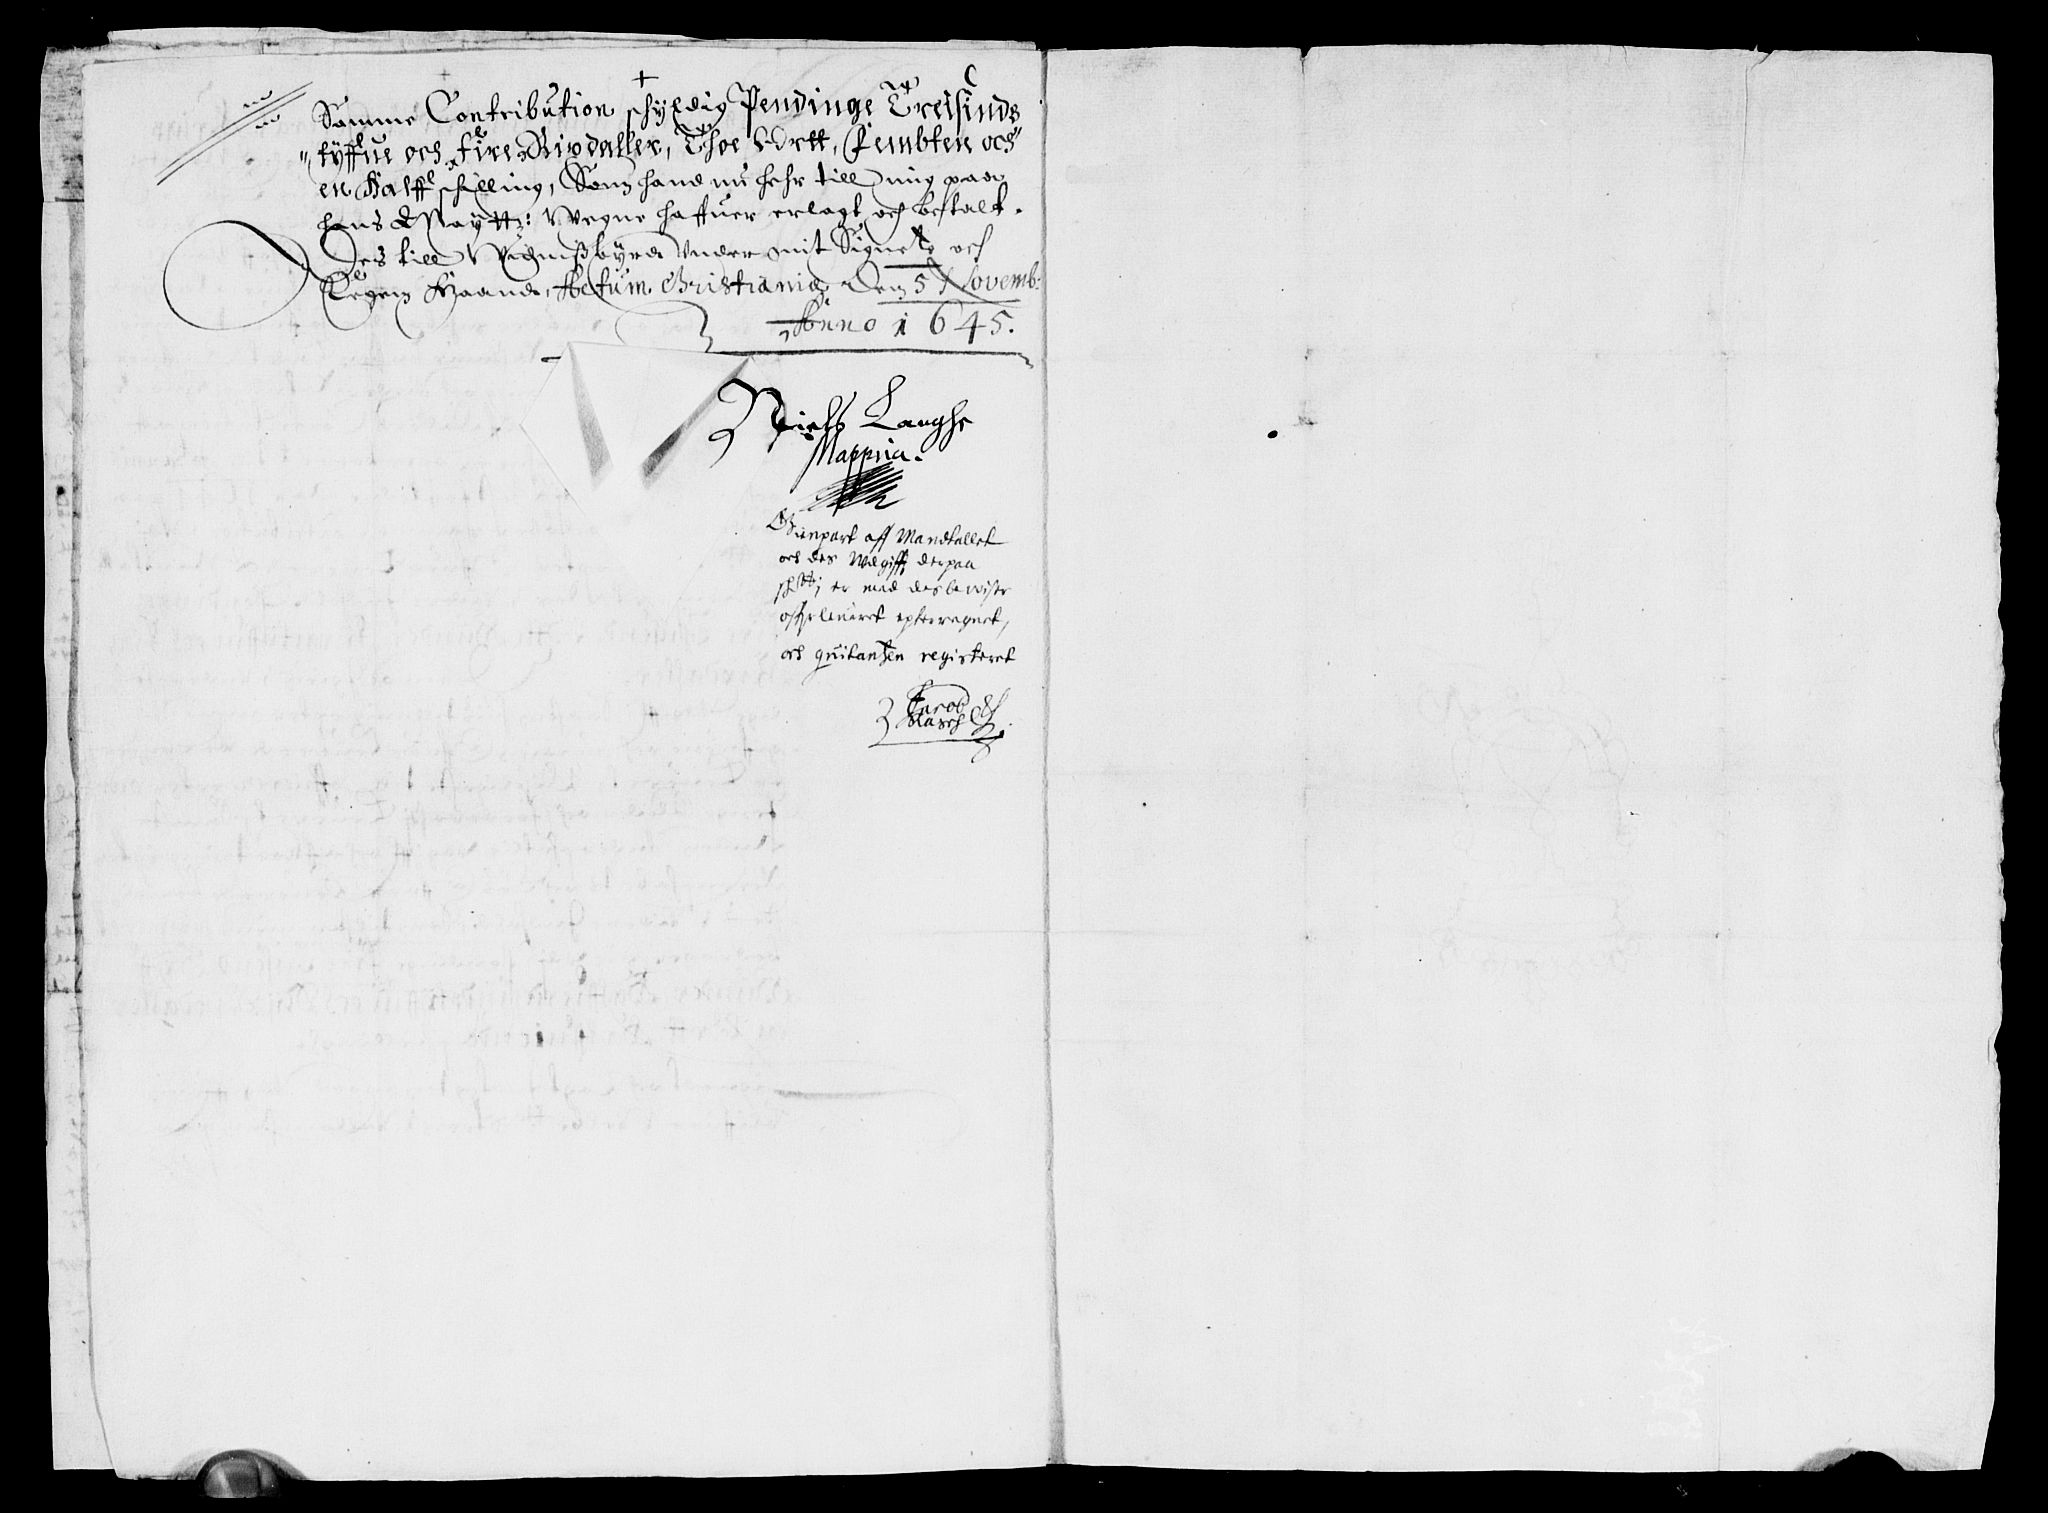 Samme Contribution schyldig Pendinge Treisinds
tyffue och fire Rixdaller, Thoe Ortt, Fembten och
en Halff schilling, Som hand nu hehr till mig paa
hans Maytts: Wegne haffuer erlagt och betalt.
Des till Widnisbyrd Under mit Signete och
Egen Haand, Actum Christianiæ Den 5 Novemb:
Anno 1645.
Niels Langhe
Mappria.
Gienpart aff Mandtallet
och des Udgifft derpaa
er med des bewisir
offrleueret epterregnet,
och quitantzen registeret
Jacob
Rasch